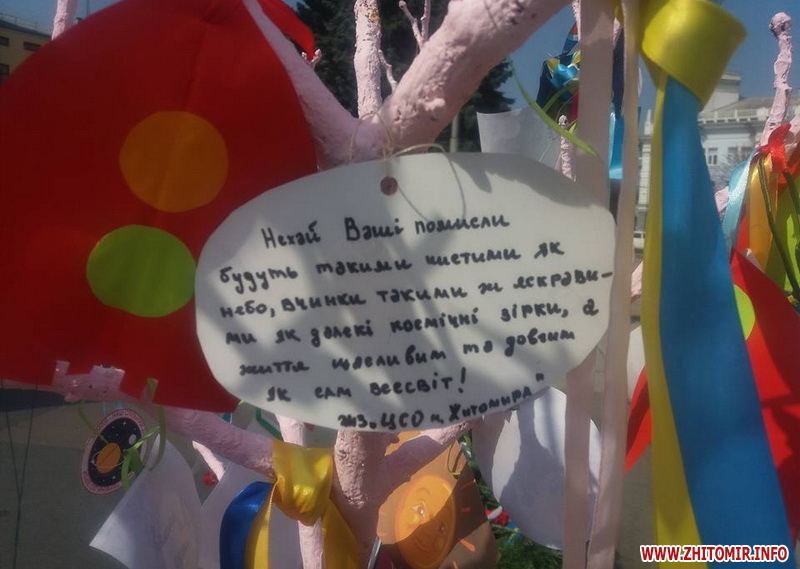 Нехай Ваші помисли
будуть такими чистими як
небо, вчинки такими ж яскрави-
ми як далекі космічні зірки, а
життя щасливим та довгим
як сам всесвіт!
ЦСО м. Житомира"
WWW.ZHITOMIR.INFO